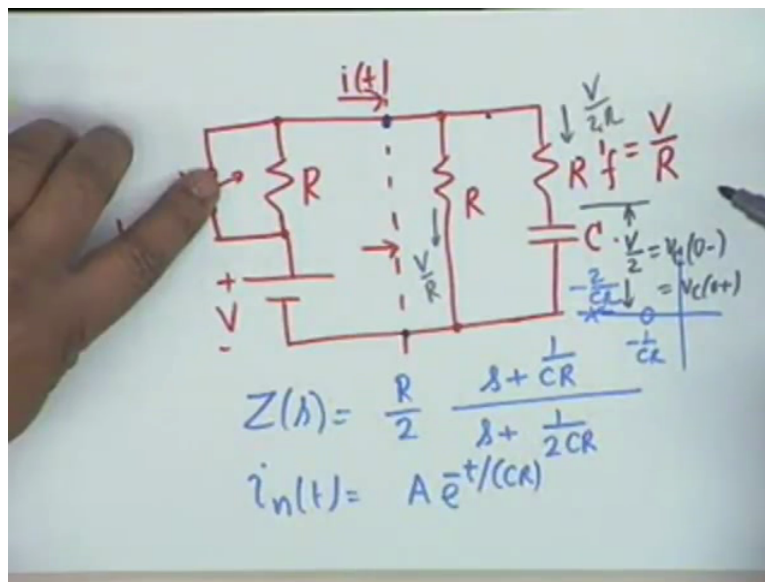 i(t)
V/2R
R
R
R
i_f = V/R
C
V/R
V/2 = v_c(0-)
= v_c(0+)
+
V
-
-2/CR
-1/CR
Z(s) = R/2 (s + 1/CR)/(s + 1/2CR)
i_n(t) = A e^-t/(CR)